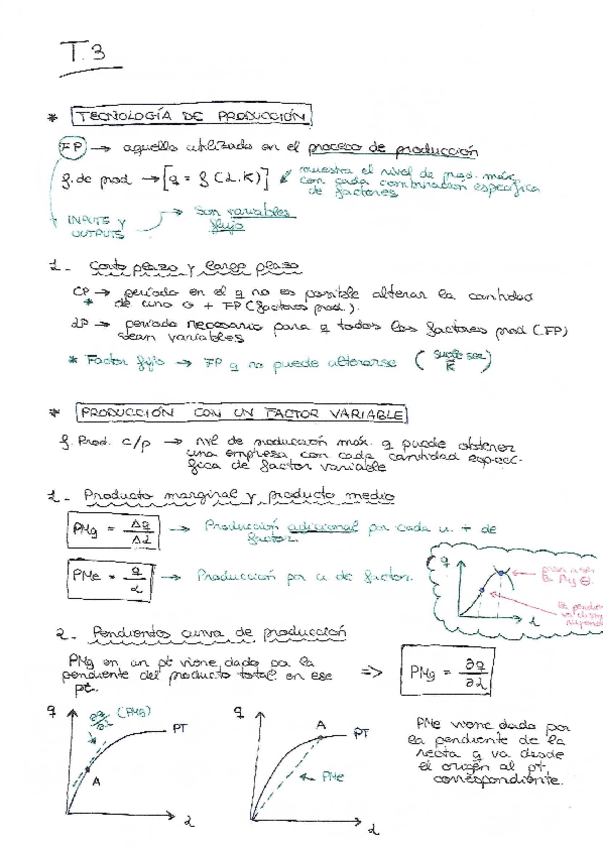 T.3
* TECNOLOGÍA DE PRODUCCIÓN
FP → aquello utilizado en el proceso de producción
f. de prod → [q = f(L,K)] muestra el nivel de prod. máx.
con cada combinación específica
de factores
INPUTS Y
OUTPUTS
→ Son variables
flujo
1- Corto plazo y largo plazo
CP → período en el q no es posible alterar la cantidad
* de uno o + FP (factores prod.).
LP → período necesario para q todos los factores prod (FP)
sean variables
* Factor fijo → FP q no puede alterarse (suele ser
K)
* PRODUCCIÓN CON UN FACTOR VARIABLE
f. Prod. c/p → nvl de producción máx. q puede obtener
una empresa con cada cantidad especí-
fica de factor variable
1- Producto marginal y producto medio
PMg = Δq/ΔL → Producción adicional por cada u. + de
factor.
PMe = q/L → Producción por u de factor.
q
L
2- Pendientes curva de producción
PMg en un pt viene dado por la
pendiente del producto total en ese
pt.
=> PMg = ∂q/∂L
q
∂q/∂L (PMg)
PT
A
L
q
A
PT
← PMe
L
PMe viene dado por
la pendiente de la
recta q va desde
el origen al pt
correspondiente.